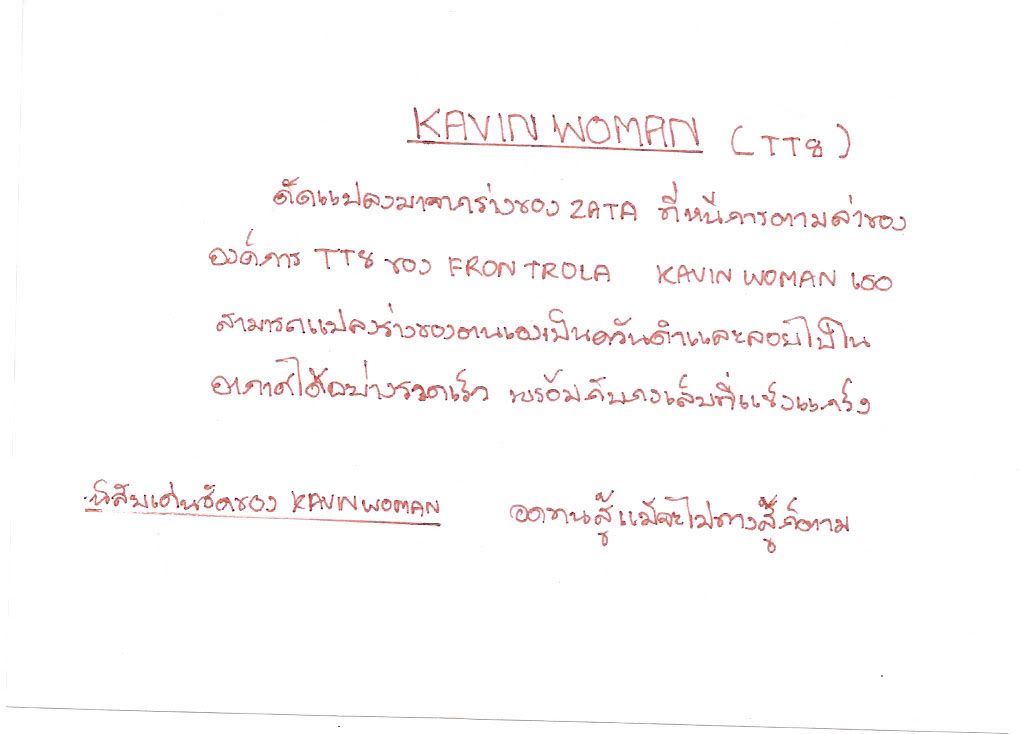 KAVIN WOMAN (TT8)
ดัดแปลงมาจากร่างของ ZATA ที่หนีการตามล่าของ
องค์การ TT8 ของ FRONTROLA KAVIN WOMAN เธอ
สามารถแปลงร่างของตนเองเป็นควันดำและลอยไปใน
อากาศได้อย่างรวดเร็ว พร้อมกับกงเล็บที่แข็งแกร่ง
นิสัยเด่นชัดของ KAVIN WOMAN อดทนสู้แม้จะไม่ทางสู้ก็ตาม